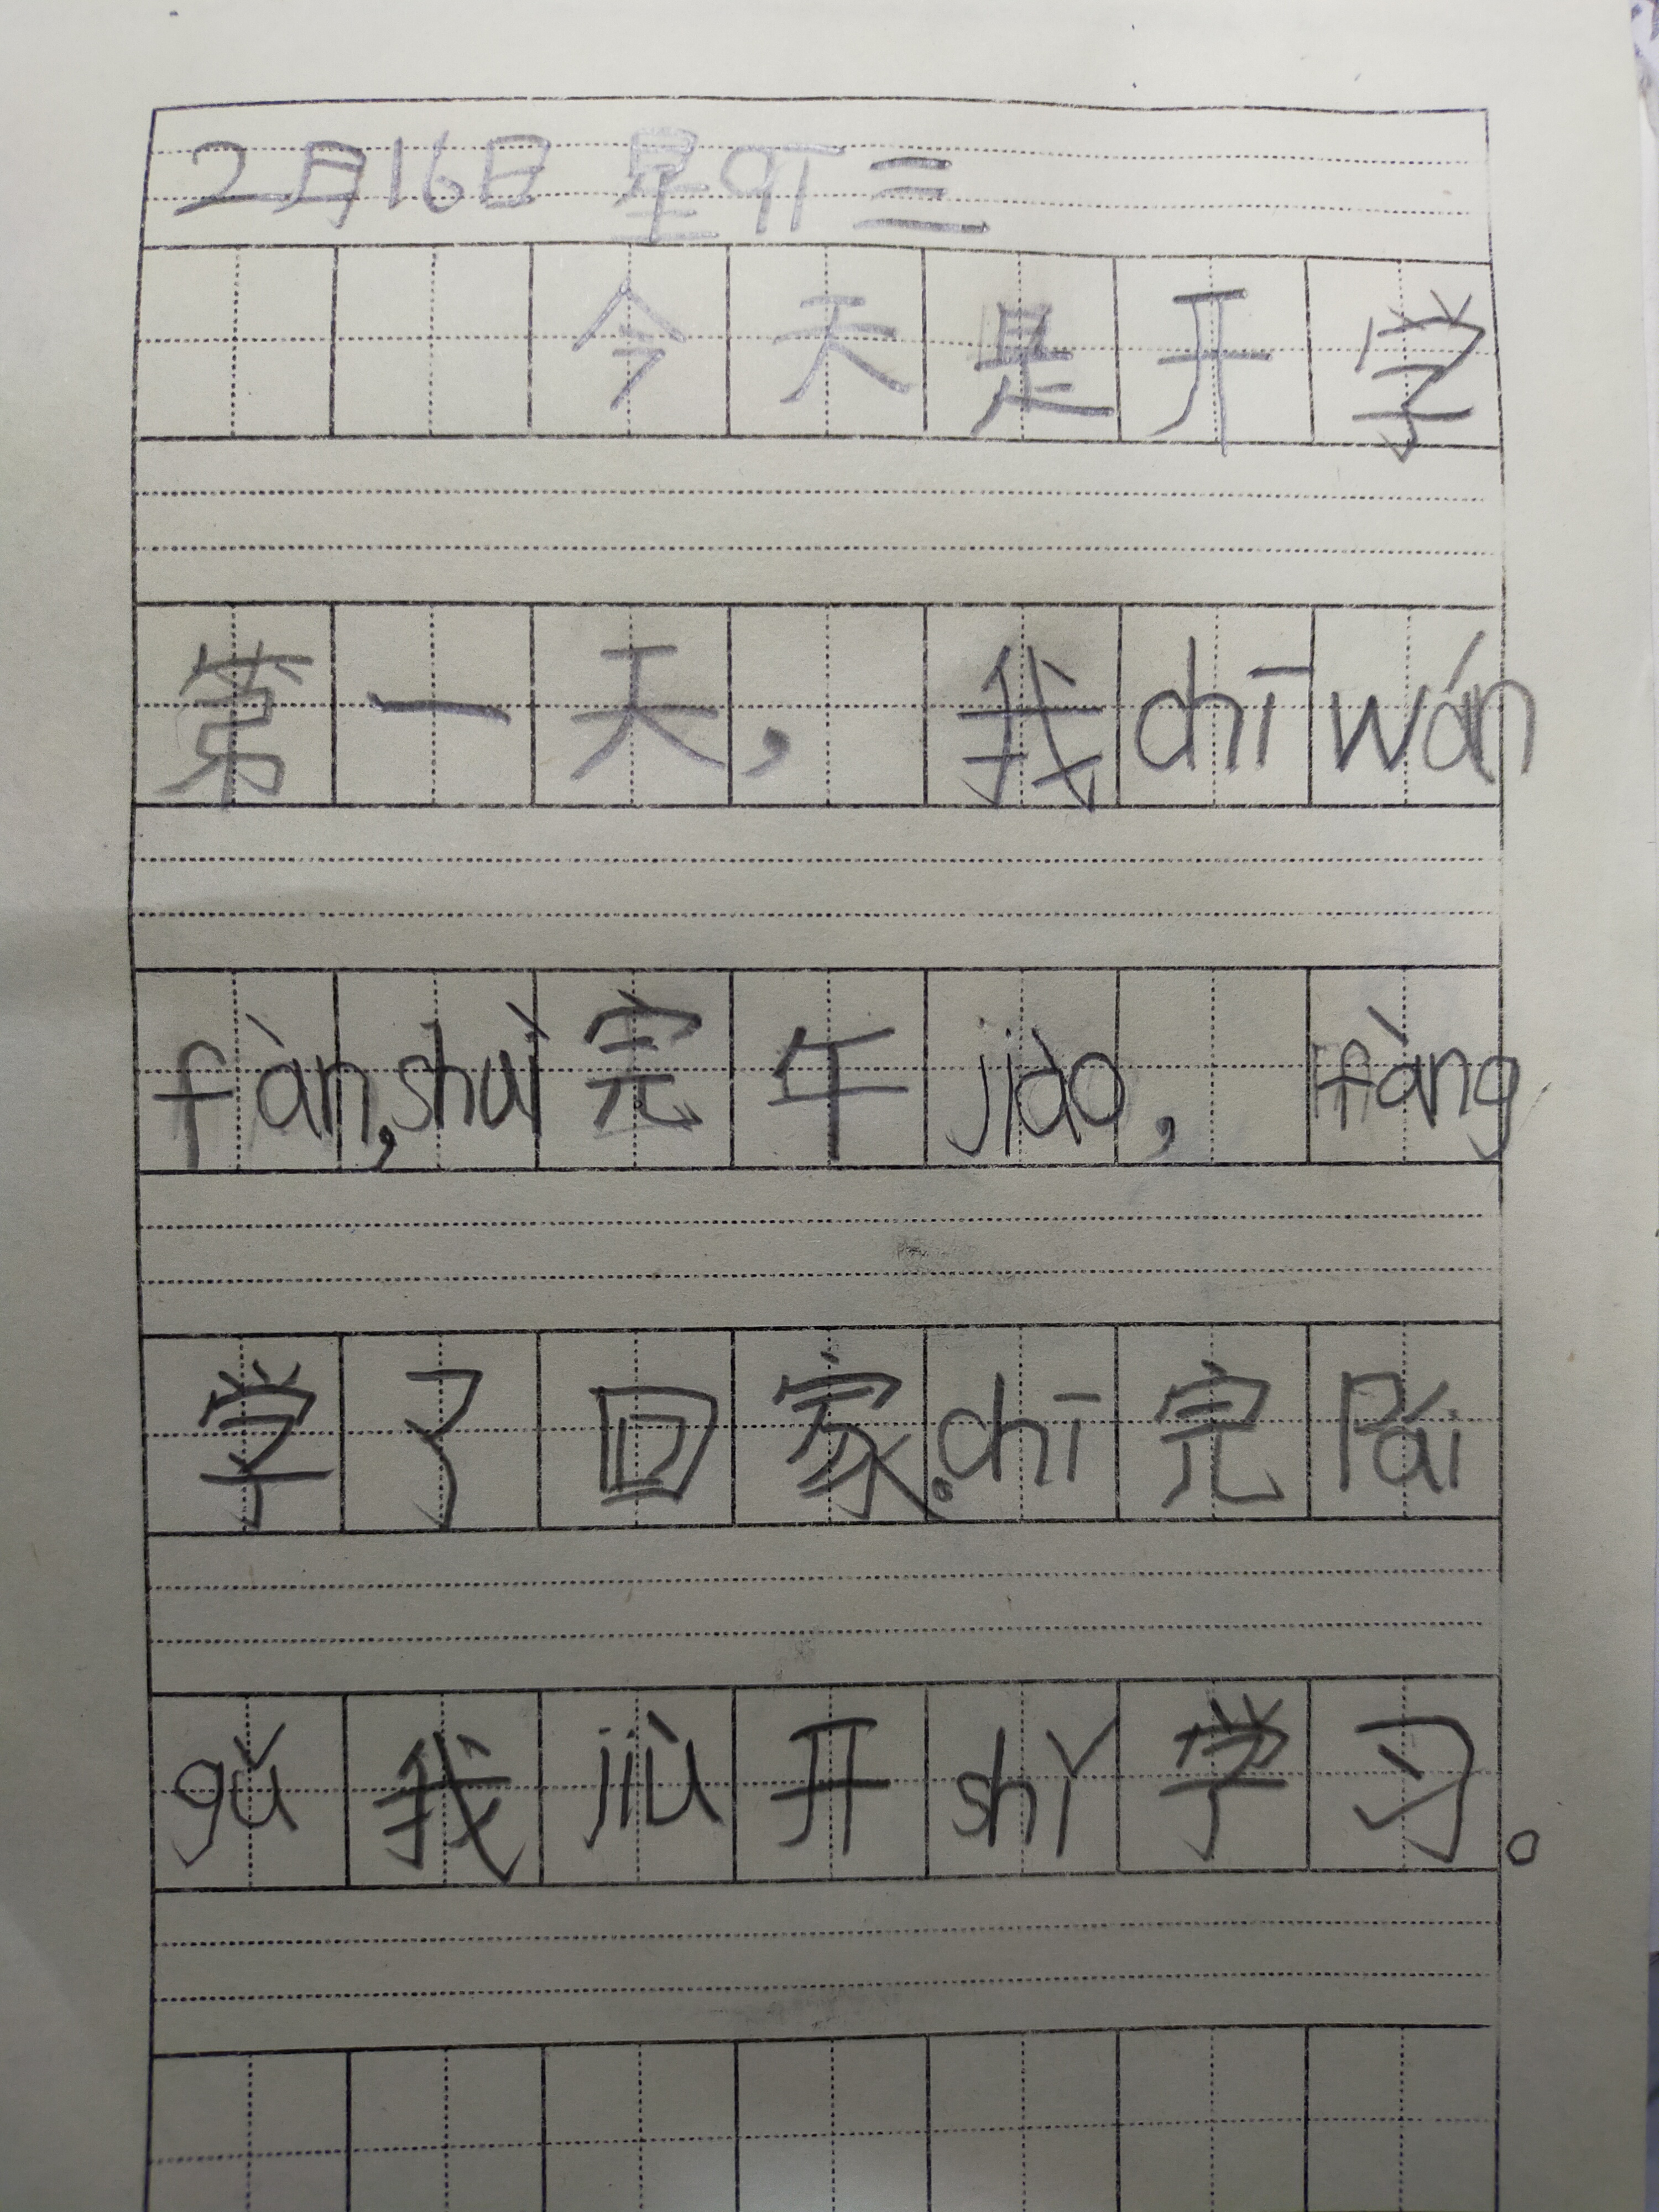 2月16日 星qī三
今天是开学
第一天，我chī wán
fàn，shuì完午jiào，fàng
学了回家。chī完Pái
gǔ我jiù开shǐ学习。